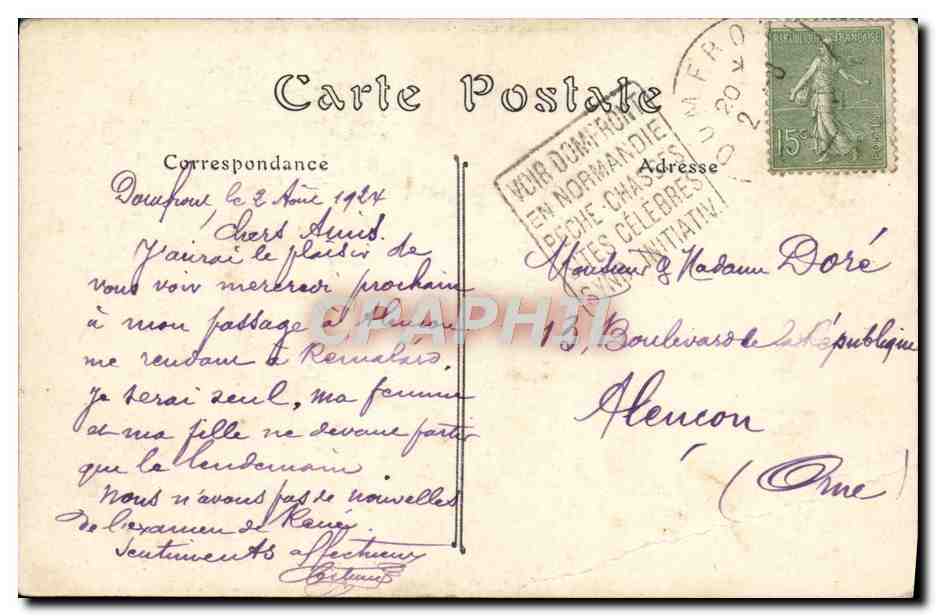 Carte Postale
Correspondance
Adresse
Domfront le 2 Août 1924
Chers Amis.
J'aurai le plaisir de
vous voir mercredi prochain
à mon passage à Alençon
me rendant à Remalard
Je serai seul, ma femme
et ma fille ne devant partir
que le lendemain
Nous n'avons pas de nouvelles
de l'examen de René.
Sentiments affectueux
VOIR DOMFRONT
EN NORMANDIE
PECHE-CHASSES
SITES CÉLÈBRES
SYND. INITIATIV.
DOMFRO
20
2
REPUBLIQUE FRANÇAISE
15c
POSTES
Monsieur & Madame Doré
13, Boulevard de la République
Alençon
(Orne)
CPAPHIL